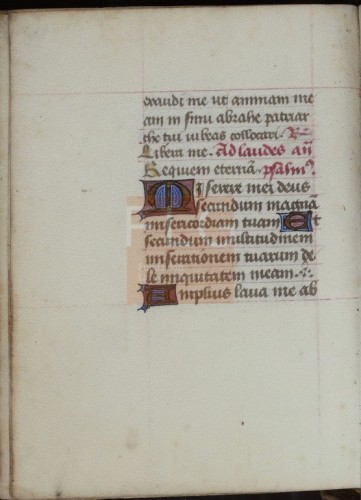 exaudi me ut animam me
am in sinu abrahe patriar
che tui iubeas collocari. R̃
Libera me. Ad laudes añ
Requiem eternã. psalm⁹.
Miserere mei deus
secundum magnã
misericordiam tuam Et
secundum multitudinem
miserationem tuarum de
le iniquitatem meam.
Amplius lava me ab